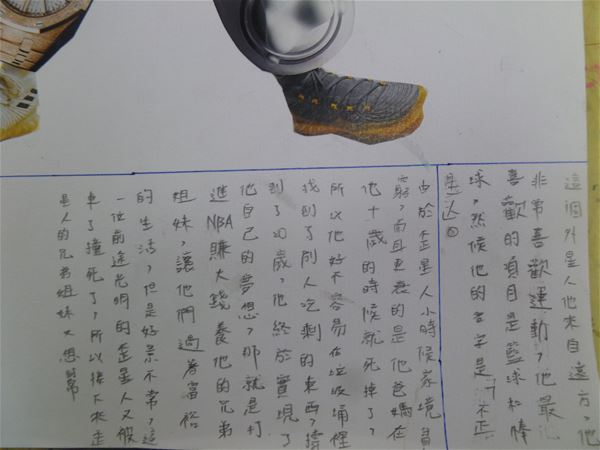 這個外星人他來自遠方,他
非常喜歡運動,他最
喜歡的項目是籃球和棒
球,然候他的名字是「不正
星人」。
由於歪星人小時候家境貧
窮,而且更衰的是他爸媽在
他十歲的時候就死掉了,
所以他好不容易在垃圾埇裡
找到了別人吃剩的東西,撐
到了20歲,他終於實現了
他自己的夢想,那就是打
進NBA賺大錢養他的兄弟
姐妹,讓他們過著富裕
的生活,但是好景不常,這
一位前途光明的歪星人又被
車了撞死了,所以接下來歪
星人的兄弟姐妹又想當